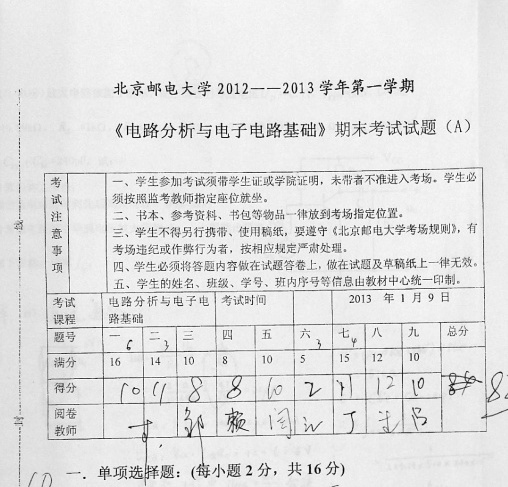 北京邮电大学 2012——2013 学年第一学期
《电路分析与电子电路基础》期末考试试题（A）
考试注意事项
一、学生参加考试须带学生证或学院证明，未带者不准进入考场。学生必
须按照监考教师指定座位就坐。
二、书本、参考资料、书包等物品一律放到考场指定位置。
三、学生不得另行携带、使用稿纸，要遵守《北京邮电大学考场规则》，有
考场违纪或作弊行为者，按相应规定严肃处理。
四、学生必须将答题内容做在试题答卷上，做在试题及草稿纸上一律无效。
五、学生的姓名、班级、学号、班内序号等信息由教材中心统一印制。
考试课程 电路分析与电子电路基础 考试时间 2013 年 1 月 9 日
题号 一 二 三 四 五 六 七 八 九 总分
6 3 3 4
满分 16 14 10 8 10 5 15 12 10
得分 10 11 8 8 10 2 11 12 10
阅卷教师
一．单项选择题：(每小题 2 分，共 16 分)